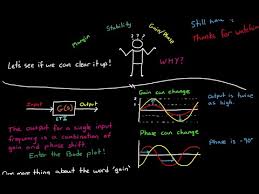 Margin
Stability
Gain/Phase
Still have
Thanks for watchin
???
Let's see if we can clear it up!
WHY?
Input
G(s)
Output
LTI
The output for a single input
frequency is a combination of
gain and phase shift.
Enter the Bode plot!
Gain can change
Output is twice
as high.
Phase can change
Phase is -90°
One more thing about the word "gain"